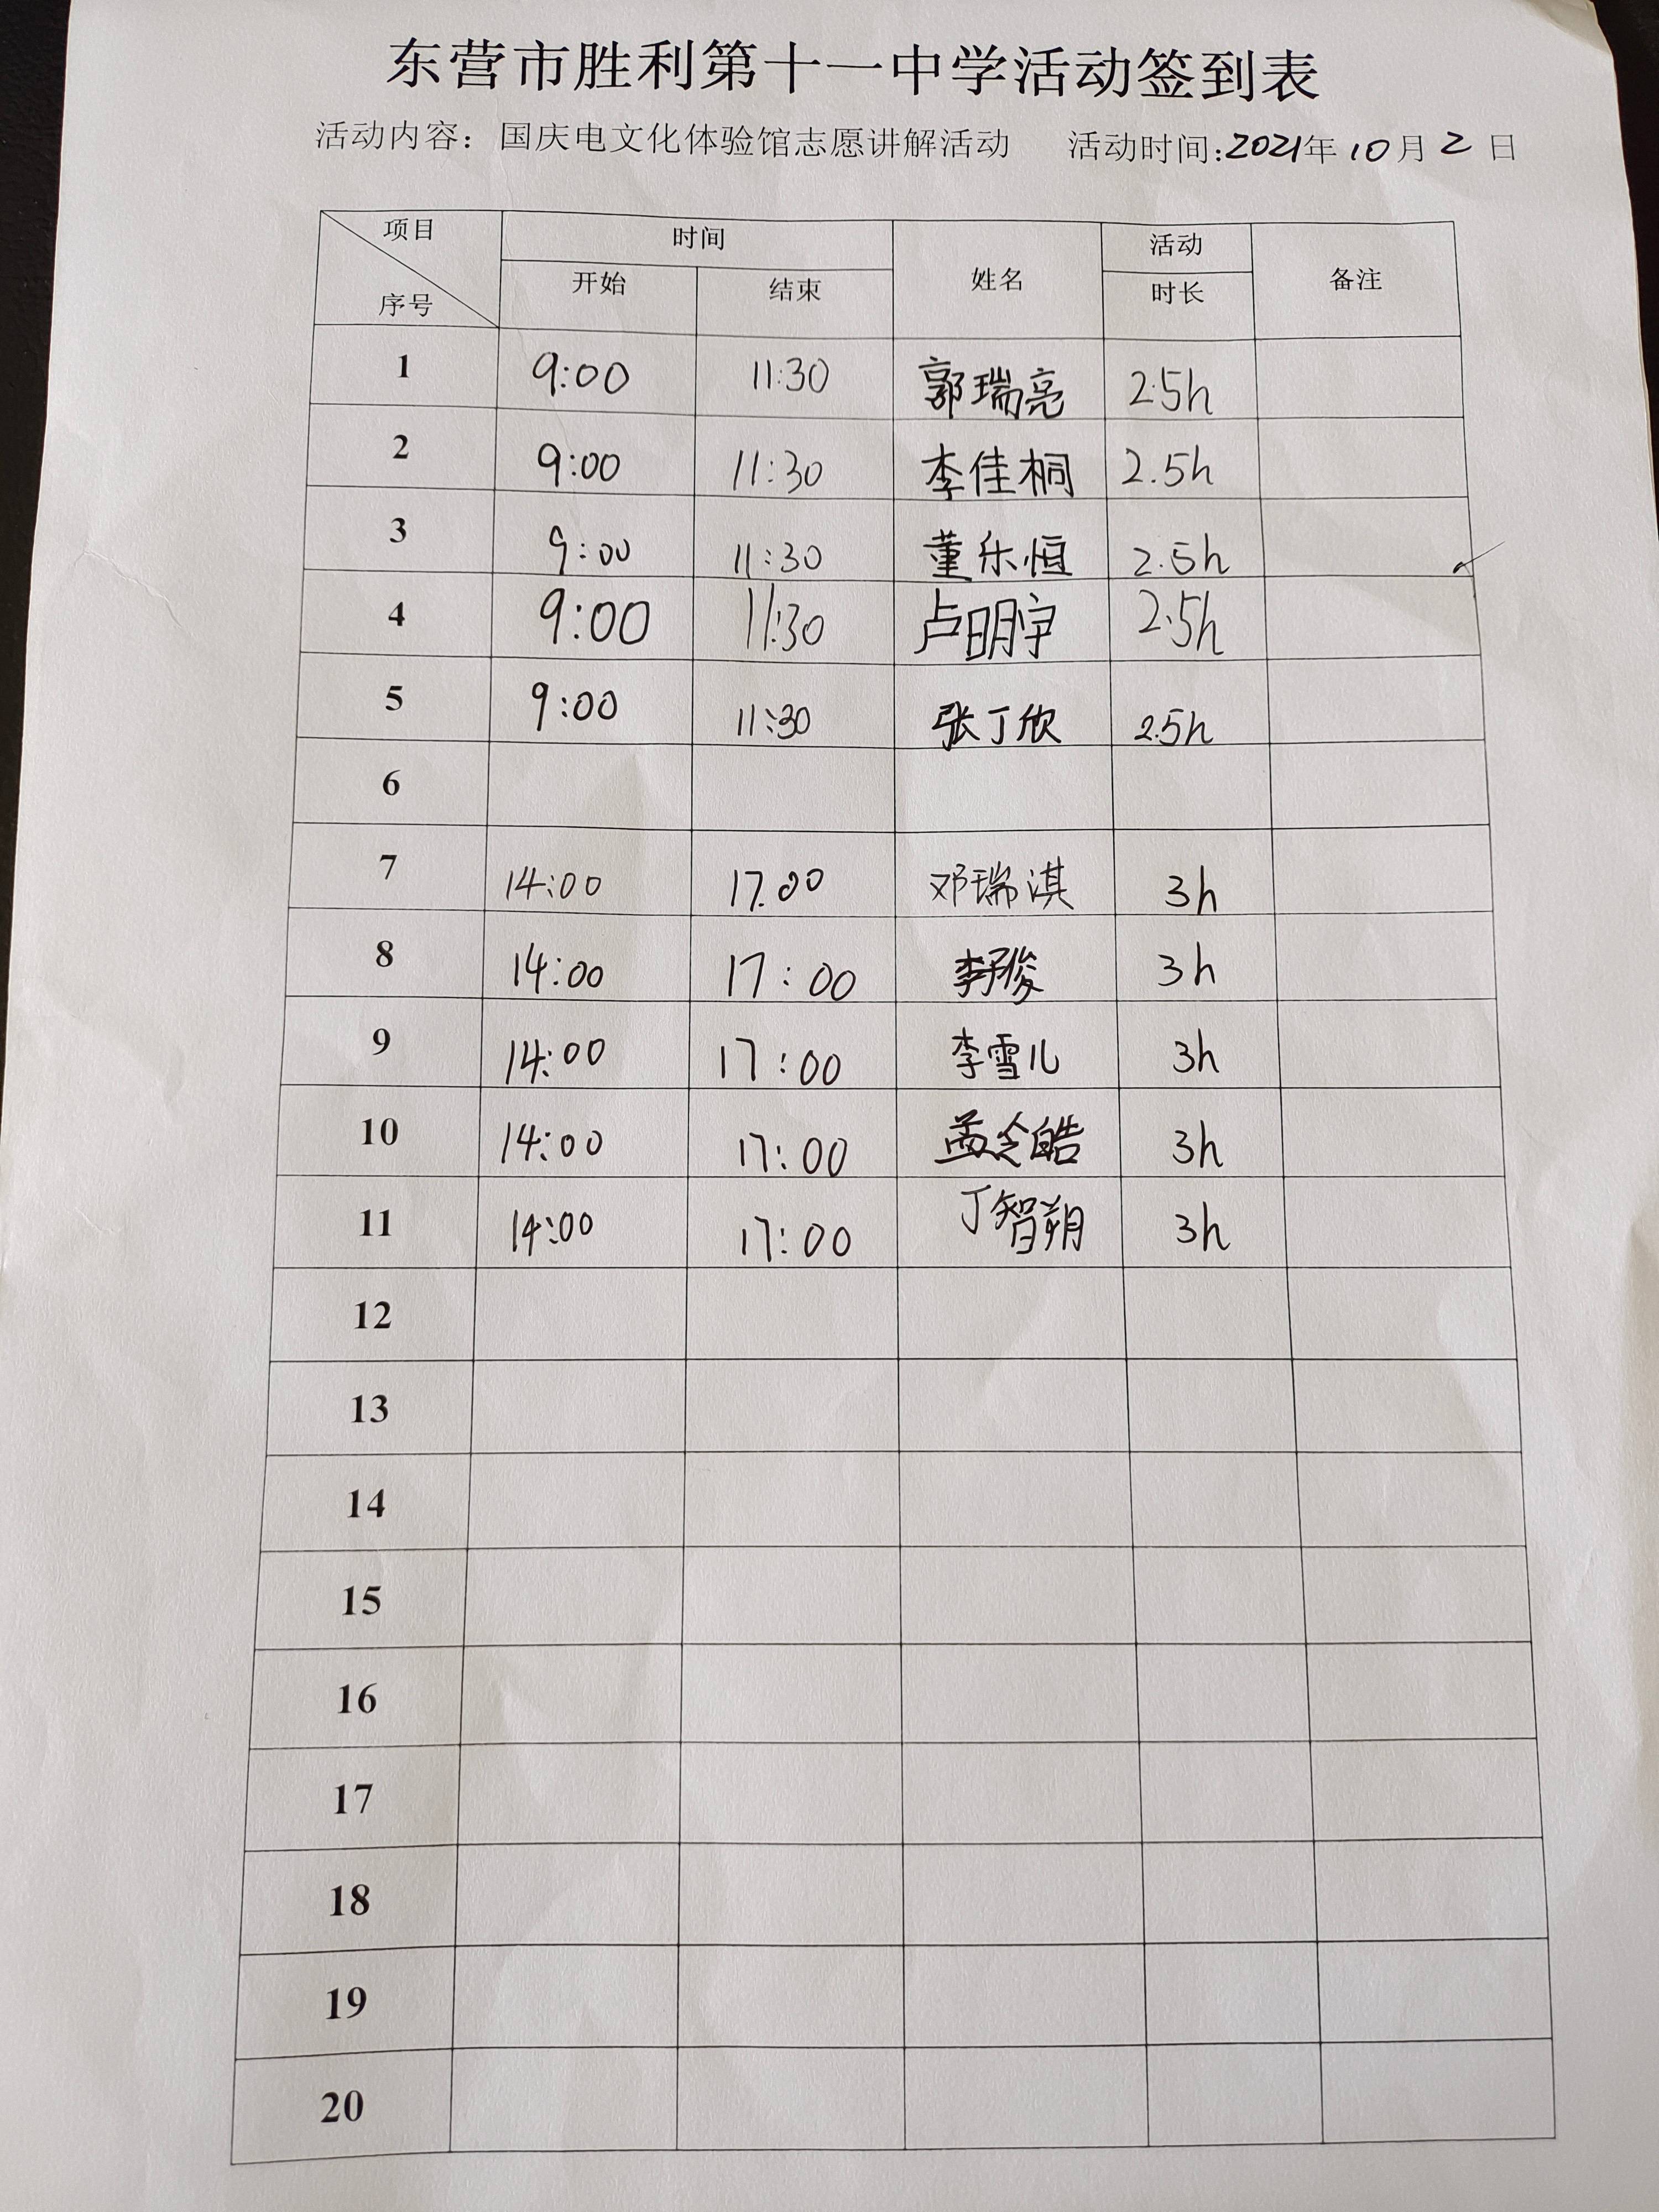 东营市胜利第十一中学活动签到表
活动内容：国庆电文化体验馆志愿讲解活动 活动时间:2021年10月2日
项目 时间 姓名 活动 备注
序号 开始 结束 时长
1 9:00 11:30 郭瑞亮 2.5h
2 9:00 11:30 李佳桐 2.5h
3 9:00 11:30 董乐恒 2.5h
4 9:00 11:30 卢明宇 2.5h
5 9:00 11:30 张丁欣 2.5h
6
7 14:00 17.00 邓瑞淇 3h
8 14:00 17:00 李子俊 3h
9 14:00 17:00 李雪儿 3h
10 14:00 17:00 孟令皓 3h
11 14:00 17:00 丁智朔 3h
12
13
14
15
16
17
18
19
20